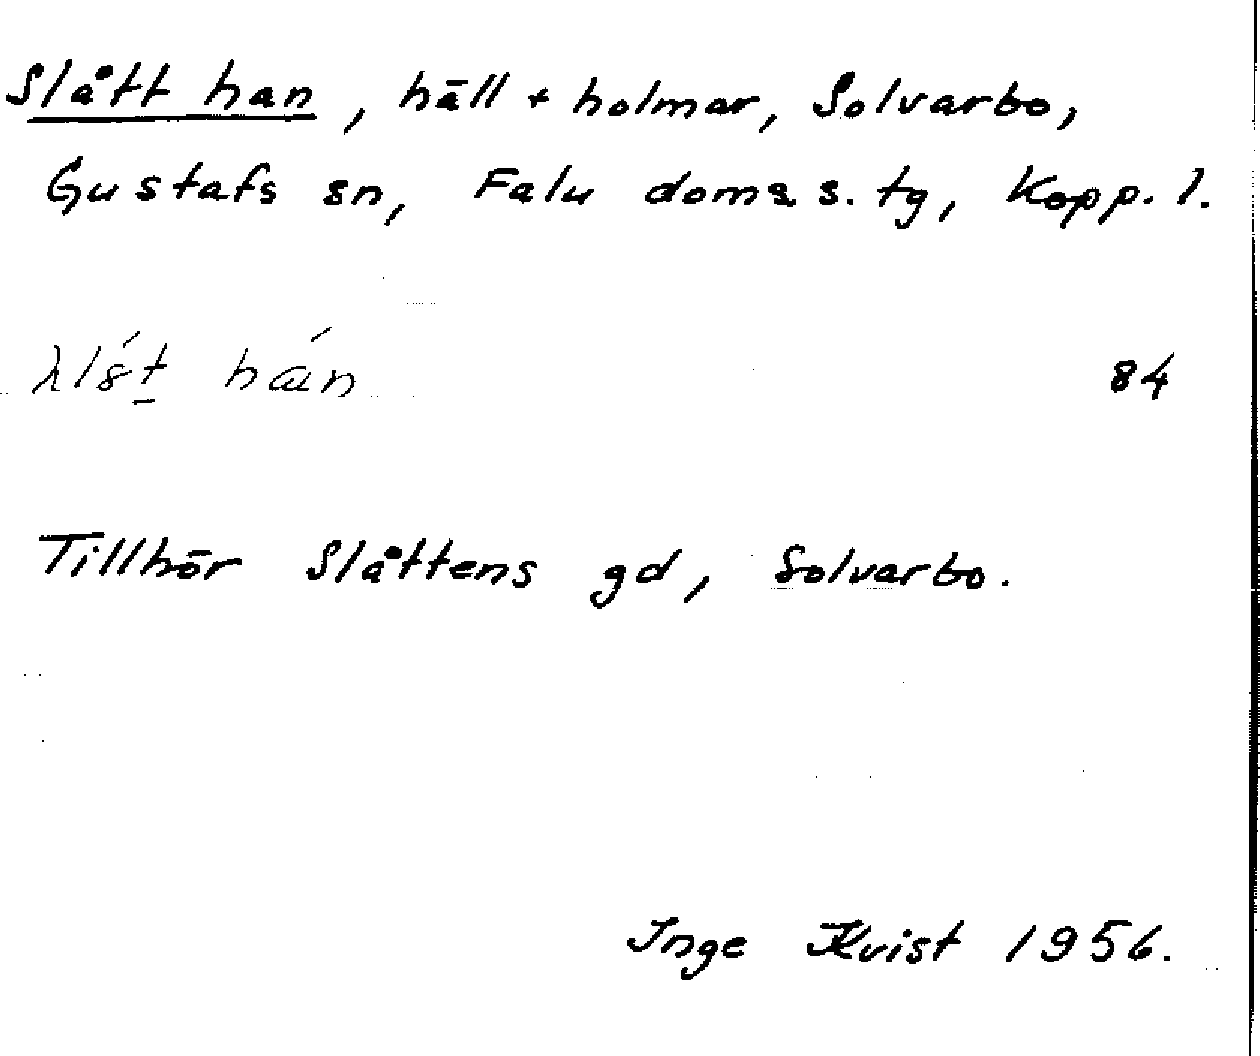 Slått han, häll + holmar, Solvarbo,
Gustafs sn, Falu doms s. tg, Kopp. l.
84
Tillhör Slåttens gd, Solvarbo.
Inge Kvist 1956.